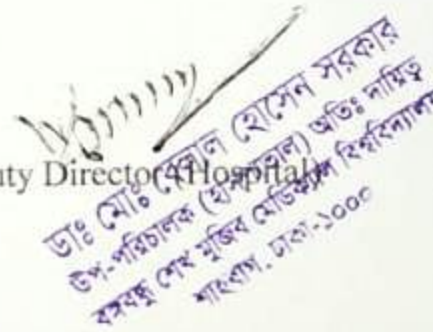 Deputy Director (Hospital)
ডাঃ মোঃ হোসেন সরকার
উপ-পরিচালক (হাসপাতাল) অতিঃ দায়িত্ব
বঙ্গবন্ধু শেখ মুজিব মেডিক্যাল বিশ্ববিদ্যালয়
শাহবাগ, ঢাকা-১০০০